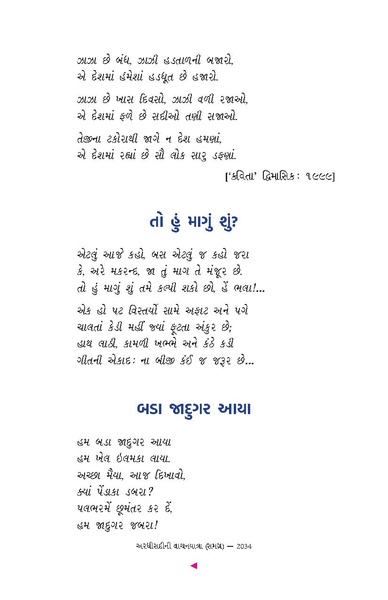 ઝાઝા છે બંધ, ઝાઝી હડતાળની બજારો,
એ દેશમાં હંમેશાં હડધૂત છે હજારો.
ઝાઝા છે ખાસ દિવસો, ઝાઝી વળી રજાઓ,
એ દેશમાં ફળે છે સદીઓ તણી સજાઓ.
તેજીના ટકોરાથી જાગે ન દેશ હમણાં,
એ દેશમાં રહ્યાં છે સૌ લોક સારુ ડફણાં.
['કવિતા' દ્વિમાસિક: ૧૯૯૯]
તો હું માગું શું?
એટલું આજે કહો, બસ એટલું જ કહો જરા
કે, અરે મકરન્દ, જા તું માગ તે મંજૂર છે.
તો હું માગું શું તમે કલ્પી શકો છો, હેં ભલા!...
એક હો પટ વિસ્તર્યો સામે અફાટ અને પગે
ચાલતાં કેડી મહીં જ્યાં ફૂટતા અંકુર છે;
હાથ લાઠી, કામળી ખભ્ભે અને કંઠે કડી
ગીતની એકાદ: ના બીજી કંઈ જ જરૂર છે...
બડા જાદુગર આયા
હમ બડા જાદુગર આયા
હમ ખેલ ઇલમકા લાયા.
અચ્છા મૈયા, આજ દિખાવો,
ક્યાં પેંડાકા ડબરા?
પલભરમેં છૂમંતર કર દેં,
હમ જાદુગર જબરા!
અરધીસદીની વાચનયાત્રા (સમગ્ર) — 2034